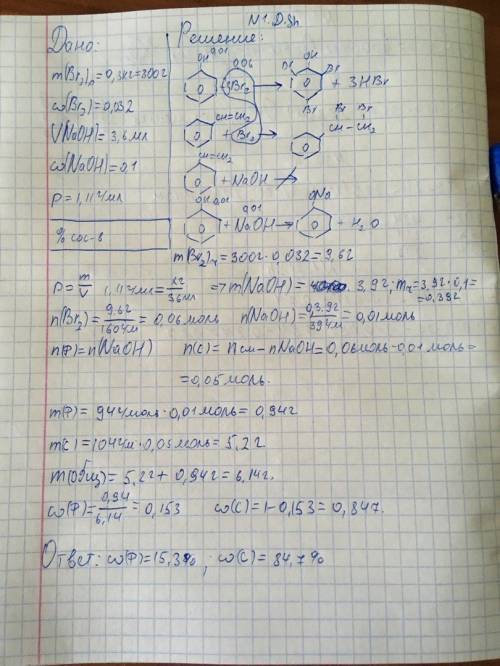 N1. D.Зн
Дано:
m(Br₂)р=0,3кг=300г
ω(Br₂)=0,032
V(NaOH)=3,6мл
ω(NaOH)=0,1
ρ=1,1г/мл
% сос-в
Решение:
OH 0,01 0,06 OH
+ 3Br₂ → Br Br Br + 3HBr
CH=CH₂ Br Br
+ Br₂ → CH-CH₂
CH=CH₂
+ NaOH ↛
OH 0,01 0,01 ONa
+ NaOH → + H₂O
m(Br₂)ч=300г·0,032=9,6г
ρ=m/V 1,1г/мл=xг/3,6мл => m(NaOH)= 3,9г, mч=3,9г·0,1=
=0,39г
n(Br₂)=9,6г/160г/м=0,06моль n(NaOH)=0,39г/39г/м=0,01моль
n(Ф)=n(NaOH) n(C)=nсм-nNaOH=0,06моль-0,01моль=
=0,05моль.
m(Ф)=94г/моль·0,01моль=0,94г
m(C)=104г/м·0,05моль=5,2г
m(общ)=5,2г+0,94г=6,14г.
ω(Ф)=0,94/6,14=0,153 ω(C)=1-0,153=0,847.
Ответ: ω(Ф)=15,3%, ω(C)=84,7%